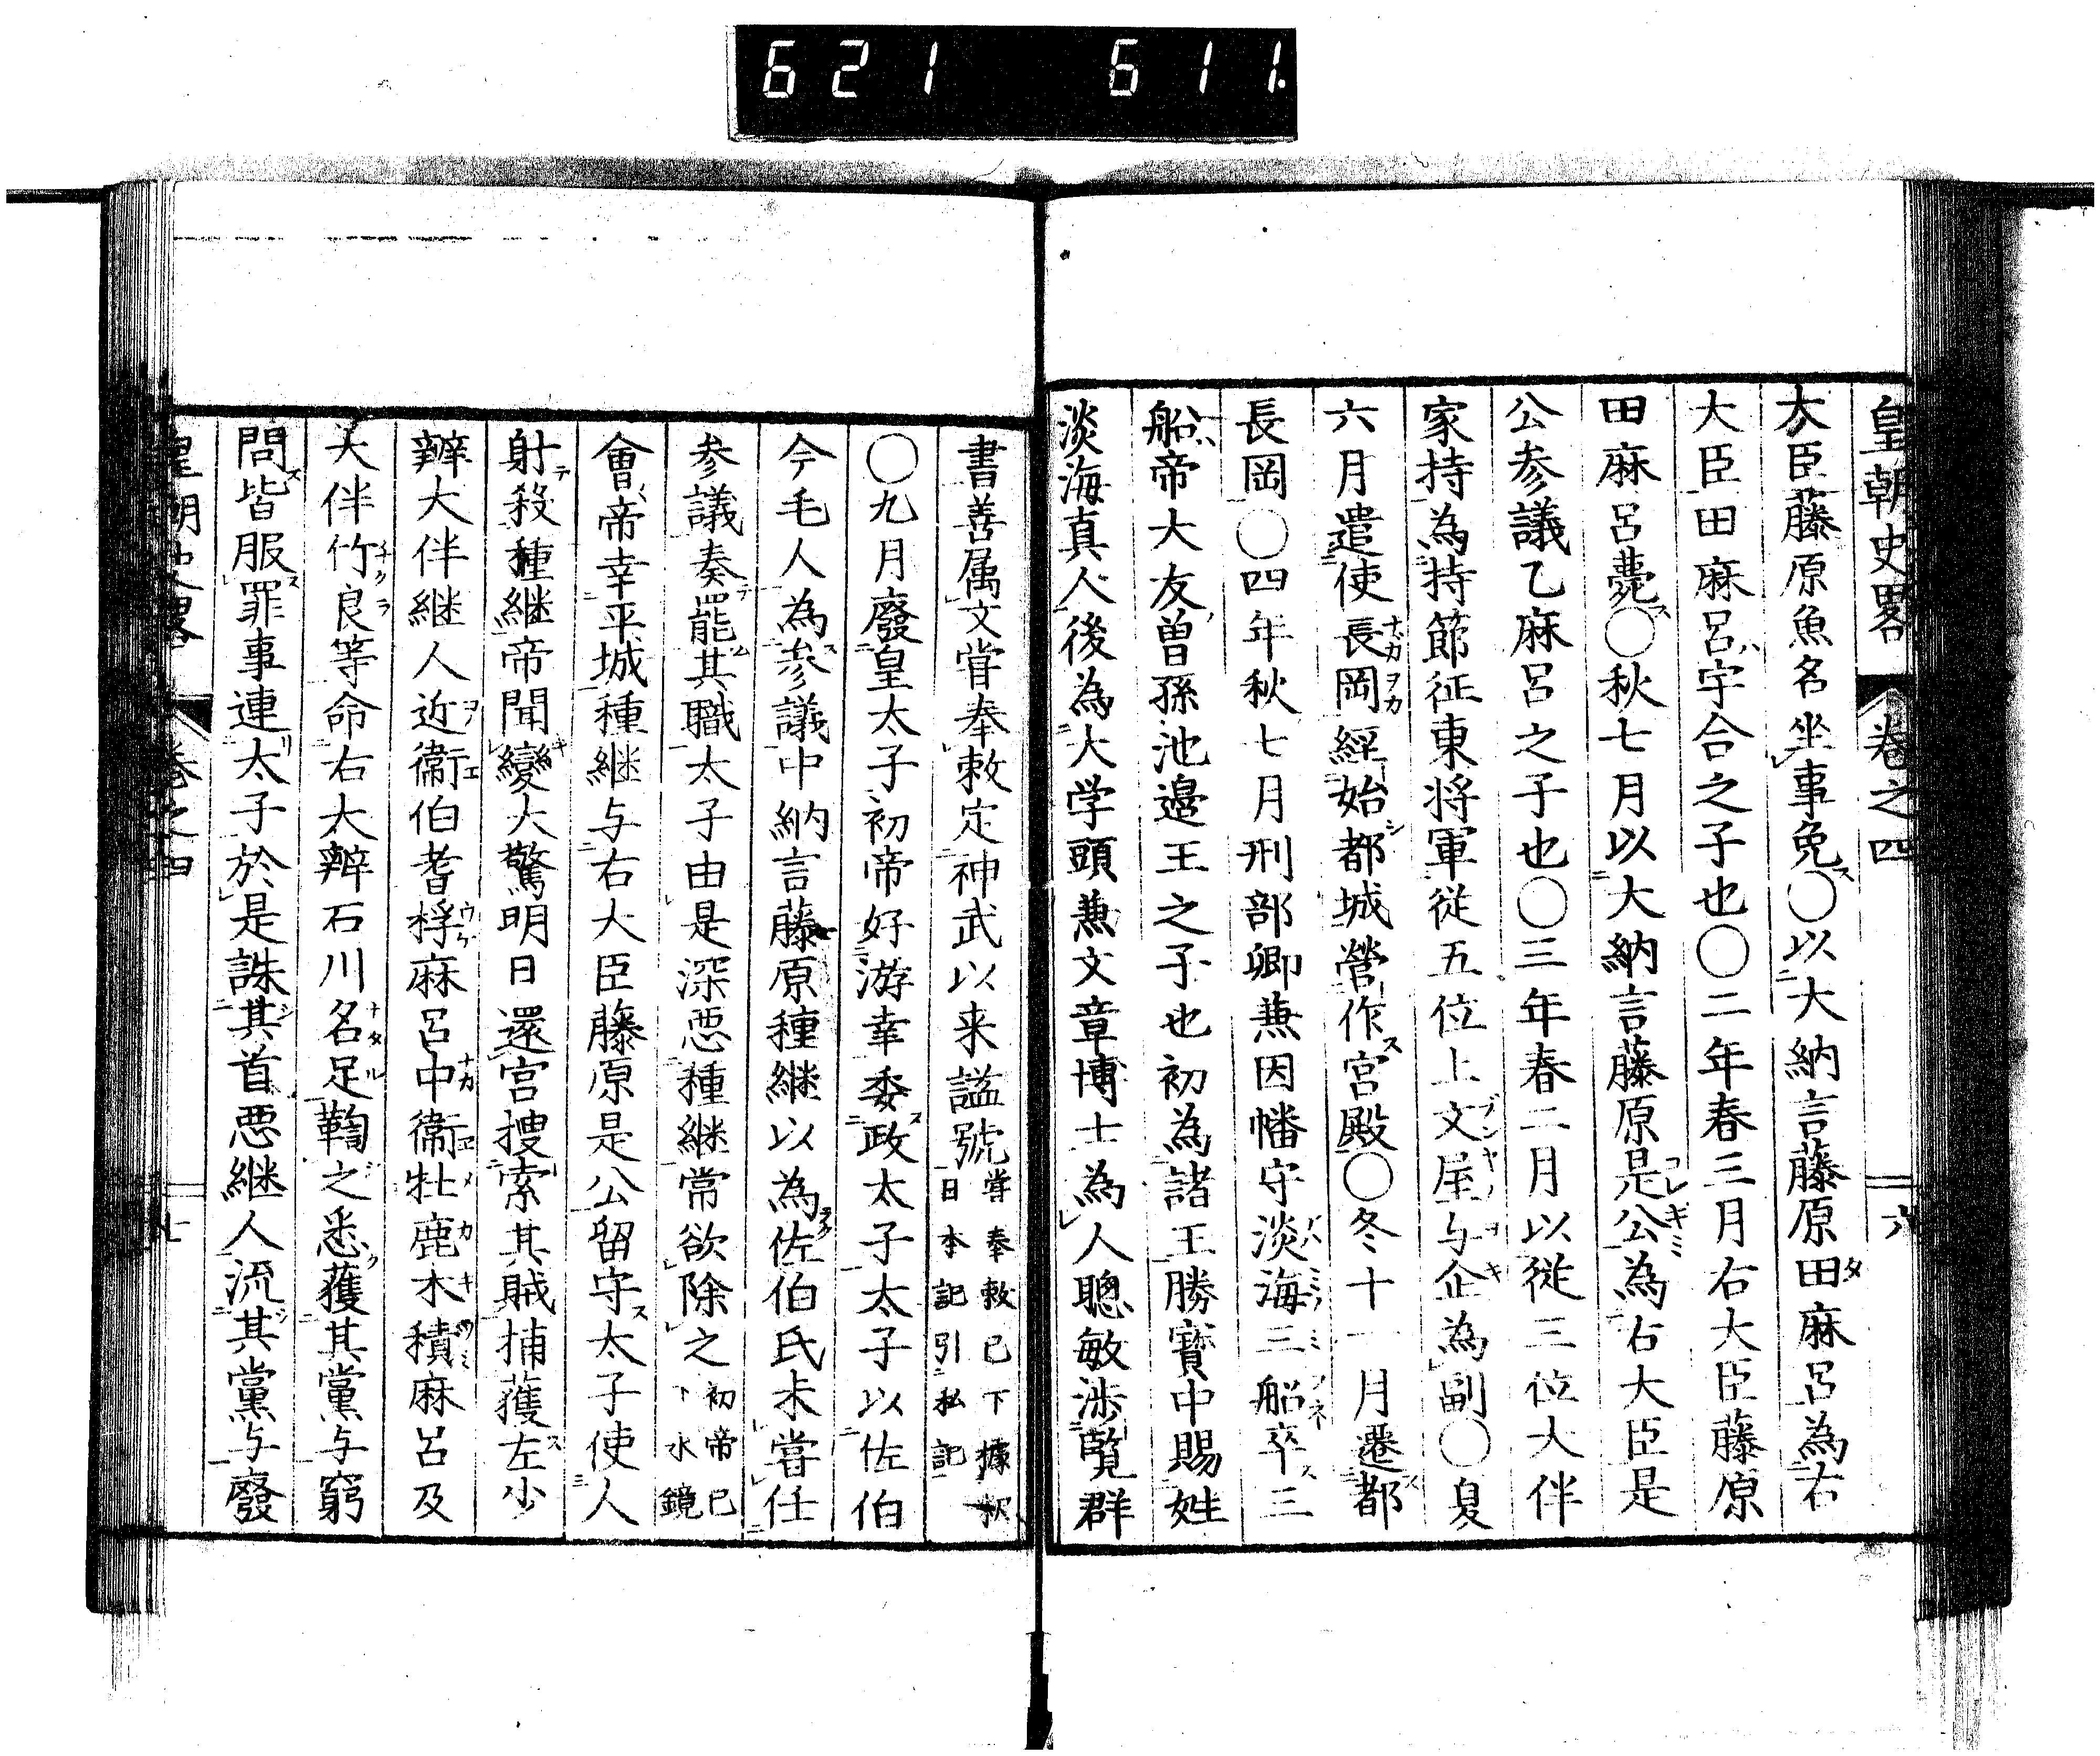 621 611.
皇朝史畧 卷之四 六
大臣藤原魚名坐事免〇以大納言藤原田麻呂為右
大臣田麻呂宇合之子也〇二年春三月右大臣藤原
田麻呂薨〇秋七月以大納言藤原是公為右大臣是
公参議乙麻呂之子也〇三年春二月以從三位大伴
家持為持節征東将軍従五位上文屋与企為副〇夏
六月遣使長岡經始都城營作宮殿〇冬十一月遷都
長岡〇四年秋七月刑部卿兼因幡守淡海三船卒三
船帝大友曽孫池邊王之子也初為諸王勝寳中賜姓
淡海真人後為大学頭兼文章博士為人聰敏渉覧群
書善属文甞奉敕定神武以来謚號甞奉敕已下據釈日本記引私記
〇九月廢皇太子初帝好游幸委政太子太子以佐伯
今毛人為参議中納言藤原種継以為佐伯氏未甞任
参議奏罷其職太子由是深惡種継常欲除之初帝已下水鏡
會帝幸平城種継与右大臣藤原是公留守太子使人
射殺種継帝聞變大驚明日還宮搜索其賊捕獲左少
辨大伴継人近衞伯耆桴麻呂中衞牡鹿木積麻呂及
大伴竹良等命右大辨石川名足鞫之悉獲其黨与窮
問皆服罪事連太子於是誅其首惡継人流其黨与廢
皇朝史畧 卷之四 七